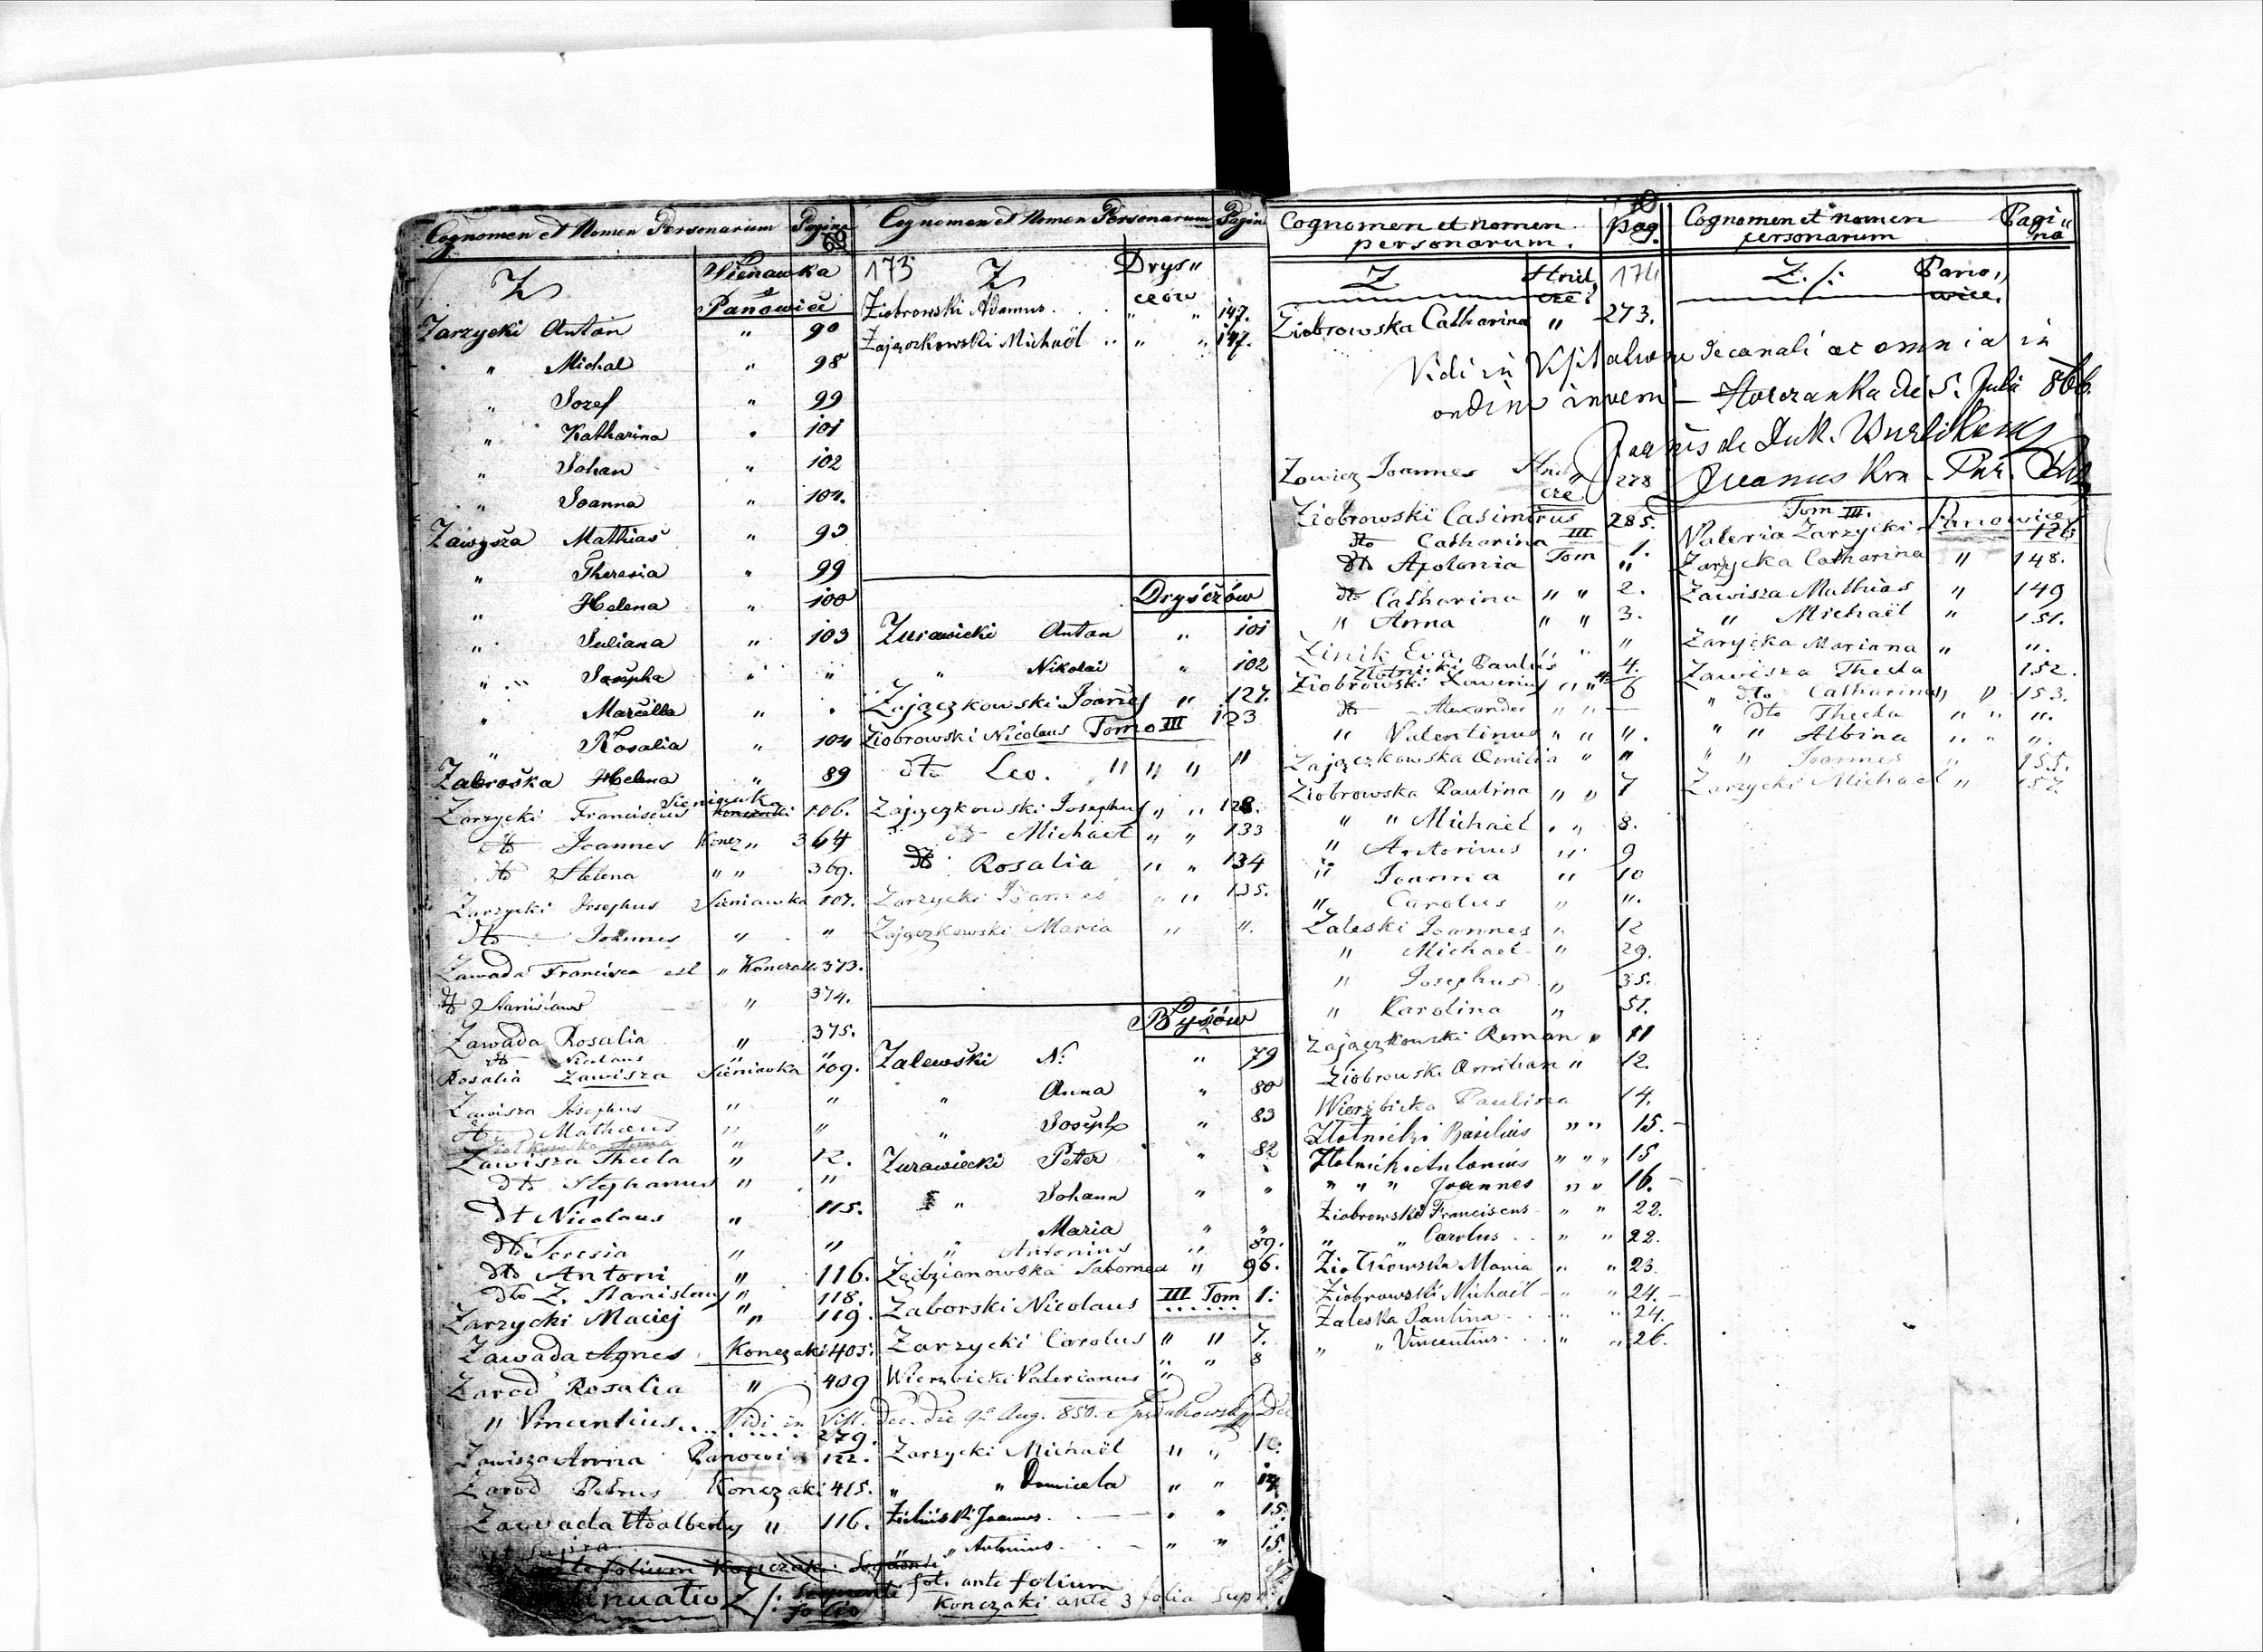 Cognomen et Nomen Personarum Pagina
69
Z Sienawka
et
Panowice
Zarzycki Anton " 90
" Michal " 98
" Jozef " 99
" Katharina " 101
" Johan " 102
" Joanna " 104.
Zawysza Mathias " 93
" Theresia " 99
" Helena " 100
" Juliana " 103
" Josepha " "
" Marcella "
" Rosalia " 104
Zabroska Helena " 89
Zarzycki Franciscus Sieniawka 106.
dto Joannes Koncz " 364
dto Helena " " 369.
Zarzycki Josephus Sieniawka 107.
dto Joannes " "
Zawada Francisca " Konczak. 373.
dto Stanislaus " 374.
Zawada Rosalia " 375.
dto Nicolaus "
Rosalia Zawisza Sieniawka 109.
Zawisza Josephus " "
dto Mathaeus " "
Zawisza Thecla " 12.
dto Stephanus " "
dt Nicolaus " 115.
dto Teresia " "
dto Antoni " 116.
dto Z. Stanislaus " 118.
Zarzycki Maciej " 119.
Zawada Agnes Konczaki 405.
Zarod Rosalia " 409
" Vincentius
279.
Zawisza Anna Panowi 122.
Zarod Petrus Konczaki 415.
Zawada Woalberty " 116.
folium Konczaki
Z /: sequente
folio
Cognomen et Nomen Personarum Pagin
173 Z Drys"
ców
Ziobrowski Adamus . . " " 147.
Zajązkowski Michaël " " 147.
Dryśczów
Zurawicki Anton " 101
" Nikolai " 102
Zajączkowski Joannes " 127.
Ziobrowski Nicolaus Tomo III 123
dto Leo. " " " "
Zajączkowski Josephus " " 128.
dto Michael " " 133
dto Rosalia " " 134
Zarzycki Joannes " " 135.
Zajączkowski Maria " ".
Byszów
Zalewski N: " 79
" Anna " 80
" Joseph " 83
Zurawiecki Peter " 82
" Johann " "
Maria " "
" Antonius " 89.
Zędzianowska Salomea " 96.
Zaborski Nicolaus III Tom 1.
Zarzycki Carolus " " 7.
" " 8
Wierzbicki Valerianus "
Vidi in Visit. Dec. die 9a Aug. 850.
Zarzycki Michaël " " 10.
" " Domicela " "
Zieliński Joannes. " " 15.
" Antonius " " 15.
fol. ante folium
Konczaki ante 3 folia
Cognomen et nomen
personarum. Pag.
Z
Ziobrowska Catharina " 273.
Zowicz Joannes 278
Ziobrowski Casimirus 285.
dto Catharina III Tom 1.
dto Apolonia "
dto Catharina " " 2.
" Anna " " 3.
Zinik Eva " " "
Złotnicki Paulus 4.
Ziobrowski Xawerius " " 6
dto Alexander " " —
" Valentinus " " ".
Zajączkowska Emilia " " "
Ziobrowska Paulina " " 7
" " Michaël " " 8.
" Antonius " 9
" Joanna " 10
" Carolus " ".
Zaleski Joannes " 12
" Michael " 29.
" Josephus " 35.
" Karolina " 51.
Zajączkowski Roman " 11
Ziobrowski Emilian " 12.
Wierzbicka Paulina 14.
Złotnicki Basilius " " 15.
Złotnicki Antonius " " " 15
" " " Joannes " " 16.
Ziobrowski Franciscus " " 22.
" " Carolus " " 22.
Ziobrowska Maria " " 23.
Ziobrowski Michaël " " 24.
Zaleska Paulina " 24.
" " Vincentius " " 26.
Cognomen et nomen
personarum Pagi"
na
Z. /: Pano"
wice.
Vidi in Visitatione decanali ac omnia in
ordine inveni — die 5. Julii 866.
Tom III. Panowice
Valeria Zarzycki 126
Zarzycka Catharina " 148.
Zawisza Mathias " 149
" Michaël " 151.
Zarycka Mariana " ".
Zawisza Thecla 152.
" dto Catharina " " 153.
dto Thecla " " ".
" " Albina " " ".
" " Joannes " 155.
Zarzycki Michael " 157.